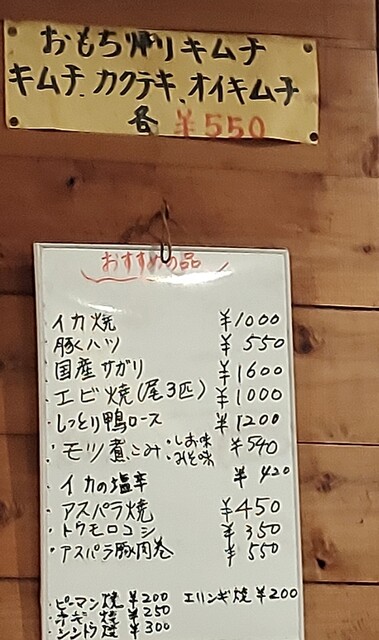 おもち帰りキムチ
キムチ、カクテキ、オイキムチ
各 ¥550
おすすめの品
・イカ焼 ¥1000
・豚ハツ ¥550
・国産サガリ ¥1600
・エビ焼(尾3匹) ¥1000
・しっとり鴨ロース ¥1200
・モツ煮こみ・しお味 ・みそ味 ¥540
・イカの塩辛 ¥420
・アスパラ焼 ¥450
・トウモロコシ ¥350
・アスパラ豚肉巻 ¥550
・ピーマン焼 ¥200 エリンギ焼 ¥200
・ネギ焼 ¥250
・シシトウ焼 ¥300